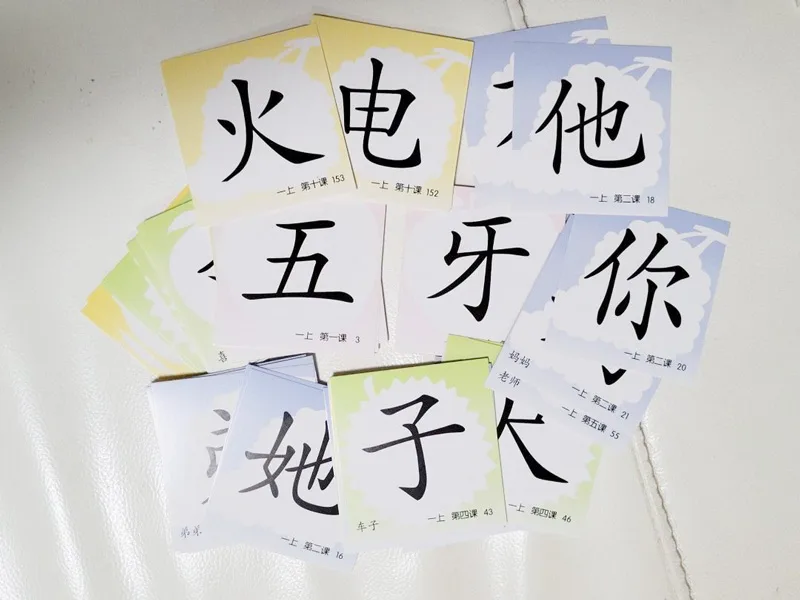 火
一上 第十课 153
电
一上 第十课 152
他
一上 第二课 18
五
一上 第一课 3
牙
你
一上 第二课 20
妈妈
老师
一上 第二课 21
一上 第五课 55
喜
她
一上 第二课 16
子
车子
一上 第四课 43
一上 第四课 46